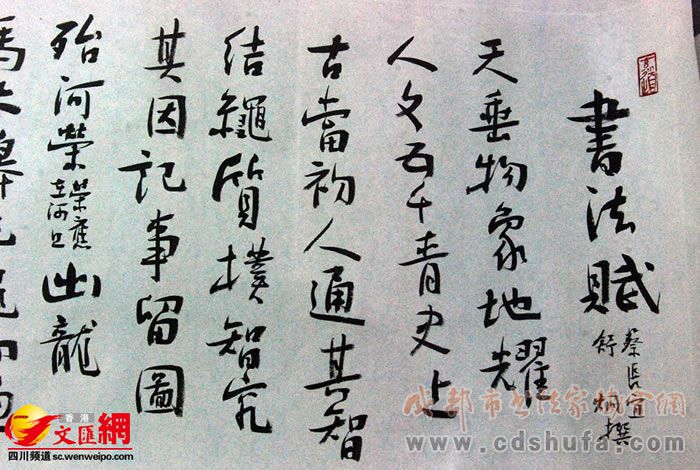 書法賦
蔡長宜
舒炯撰
天垂物象地耀
人文五千青史上
古當初人通其智
结繩質撲智究
其因記事留圖
殆河榮榮應出龍
馬
成都市书法家协会网
www.cdshufa.com
香港
文匯網
四川频道 sc.wenweipo.com